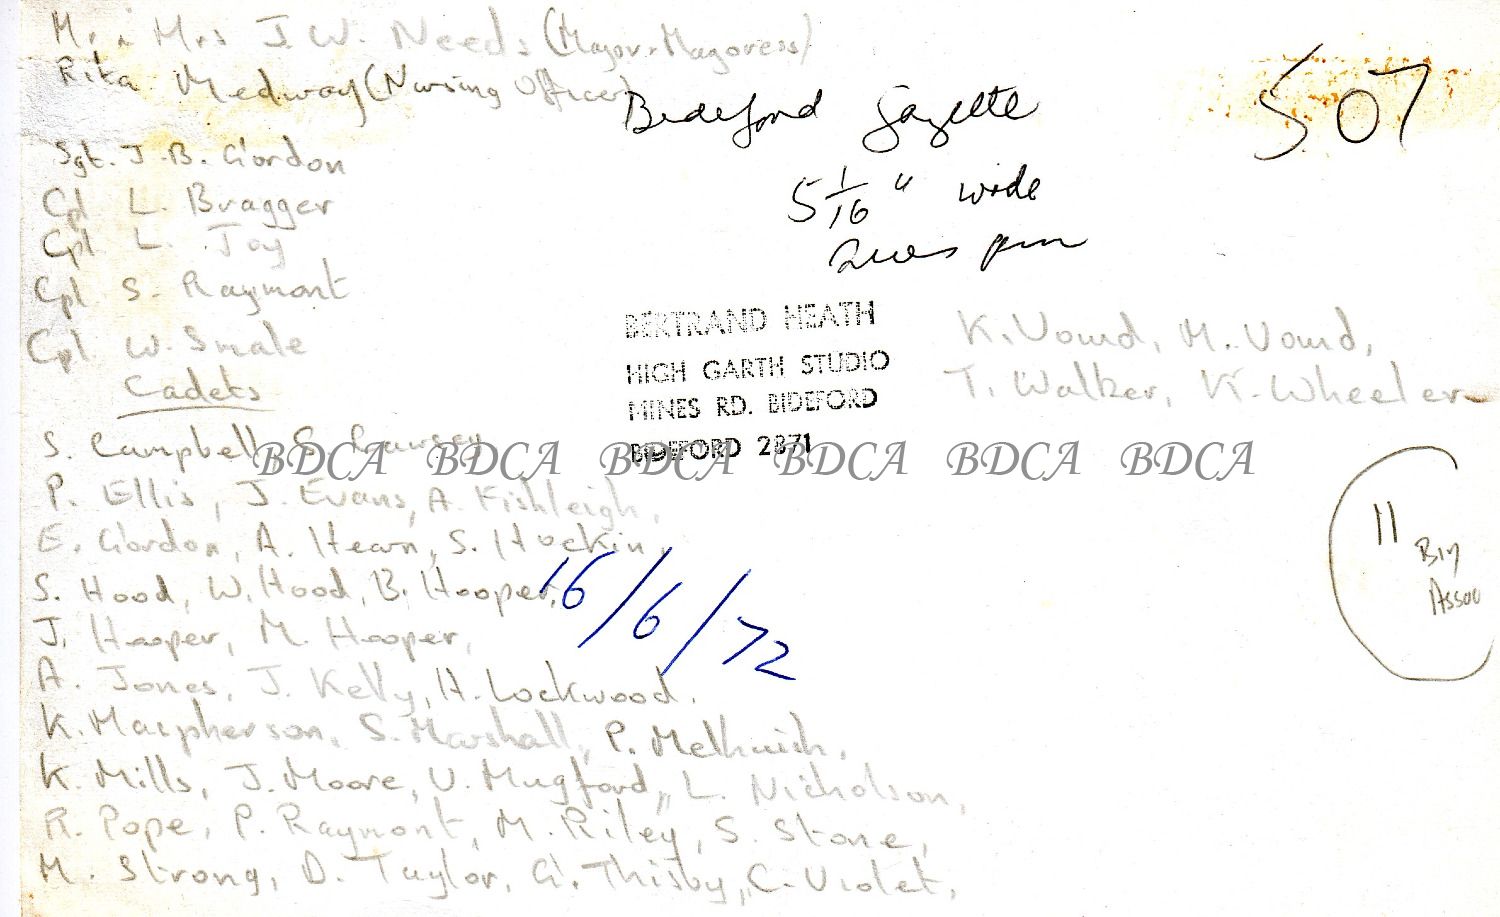 Mr. & Mrs J.W. Needs (Mayor-Mayoress)
Rika Medway (Nursing Officer)
Sgt. J.B. Gordon
Cpl L. Bragger
Cpl L. Joy
Cpl S. Raymont
Cpl W. Smale
Cadets
S. Campbell,
P. Ellis, J. Evans, A. Fishleigh,
E. Gordon, A. Hearn, S. Hockin,
S. Hood, W. Hood, B. Hooper,
J. Hooper, M. Hooper,
A. Jones, J. Kelly, H. Lockwood.
K. Macpherson, S. Marshall, P. Melhuish,
K. Mills, J. Moore, V. Mugford, L. Nicholson,
R. Pope, P. Raymont, M. Riley, S. Stone,
M. Strong, D. Taylor, G. Thisby, C. Violet,
K. Vound, M. Vound,
T. Walker, K. Wheeler
Bideford Gazette
5 1/16" wide
507
BERTRAND HEATH
HIGH GARTH STUDIO
MINES RD. BIDEFORD
BIDEFORD 2871
BDCA BDCA BDCA BDCA BDCA BDCA
16/6/72
11